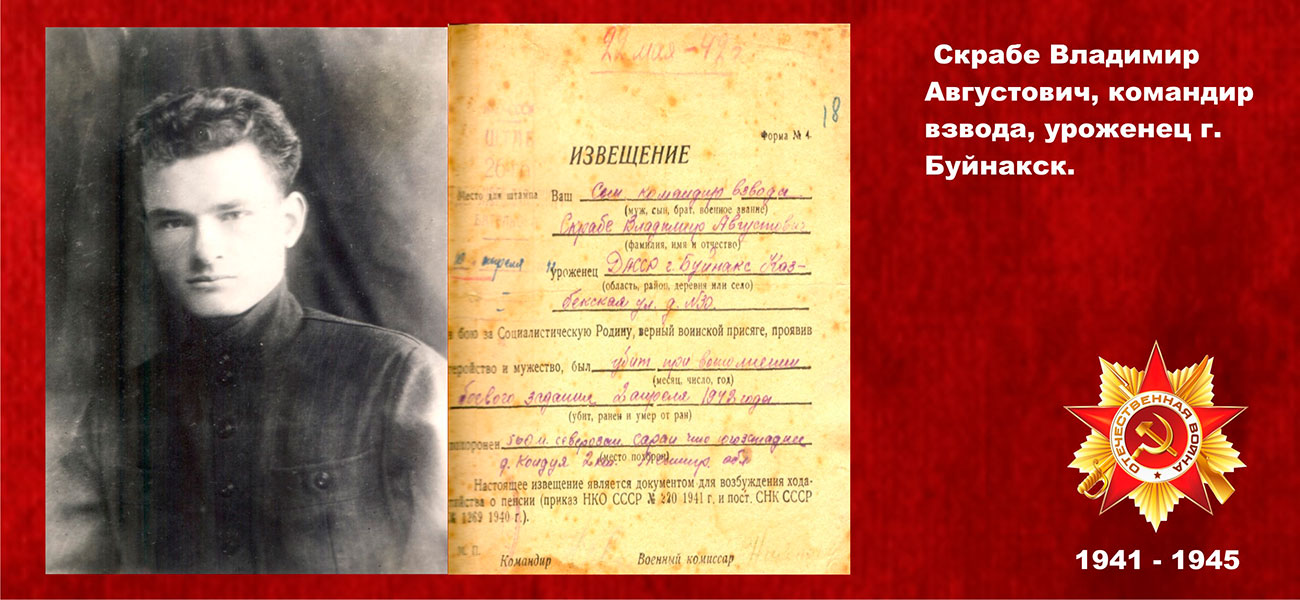 22 мая - 42г
18
Форма № 4
ИЗВЕЩЕНИЕ
Место для штампа
Ваш сын командир взвода
(муж, сын, брат, военное звание)
Скрабе Владимир Августович
(фамилия, имя и отчество)
апреля
уроженец ДАССР г. Буйнакс Каз-
(область, район, деревня или село)
бекская ул. д. №30.
в бою за Социалистическую Родину, верный воинской присяге, проявив
геройство и мужество, был убит при выполнении
(месяц, число, год)
боевого задания 2 апреля 1942 года
(убит, ранен и умер от ран)
похоронен 500 м. северозап. сарая что югозападнее
д. Кондуя 2 км. (место похорон) обл
Настоящее извещение является документом для возбуждения хода-
тайства о пенсии (приказ НКО СССР № 220 1941 г. и пост. СНК СССР
№ 1269 1940 г.).
М. П.
Командир Военный комиссар
Скрабе Владимир
Августович, командир
взвода, уроженец г.
Буйнакск.
ОТЕЧЕСТВЕННАЯ ВОЙНА
1941 - 1945